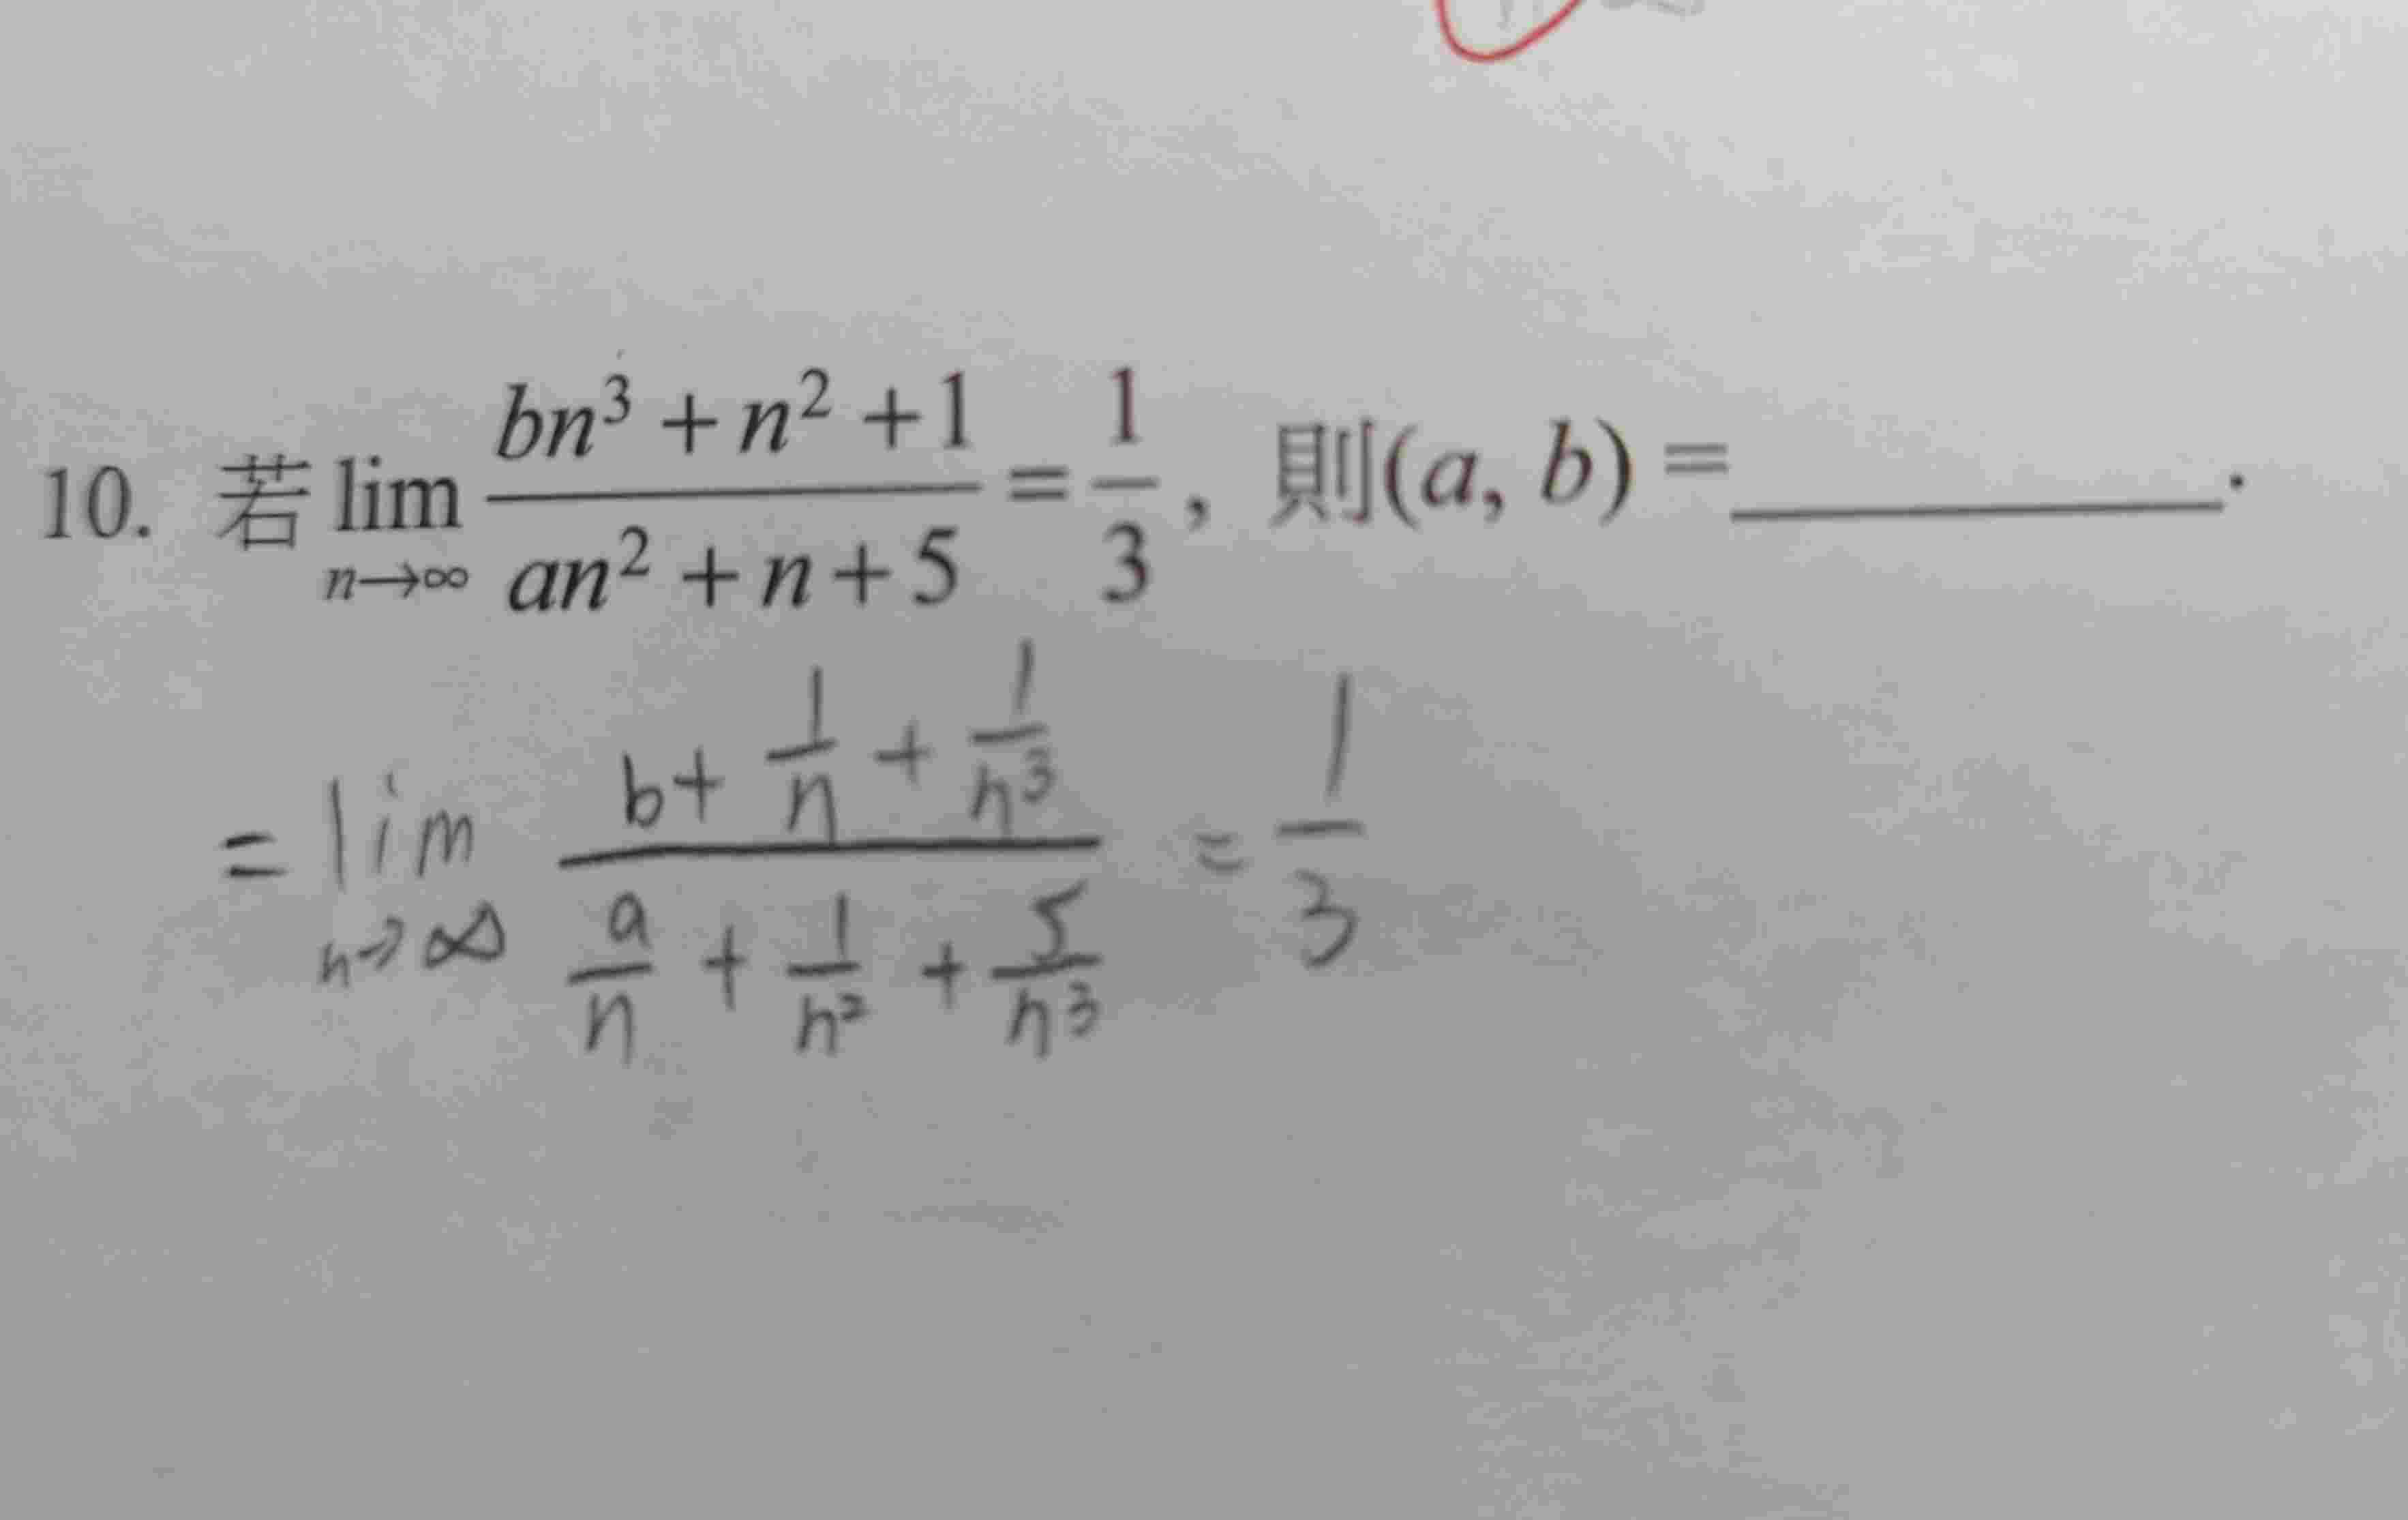 10. 若 lim_{n→∞} \frac{bn^3 + n^2 + 1}{an^2 + n + 5} = \frac{1}{3}, 則(a, b) = ________.
= lim_{n→∞} \frac{b + \frac{1}{n} + \frac{1}{n^3}}{\frac{a}{n} + \frac{1}{n^2} + \frac{5}{n^3}} = \frac{1}{3}